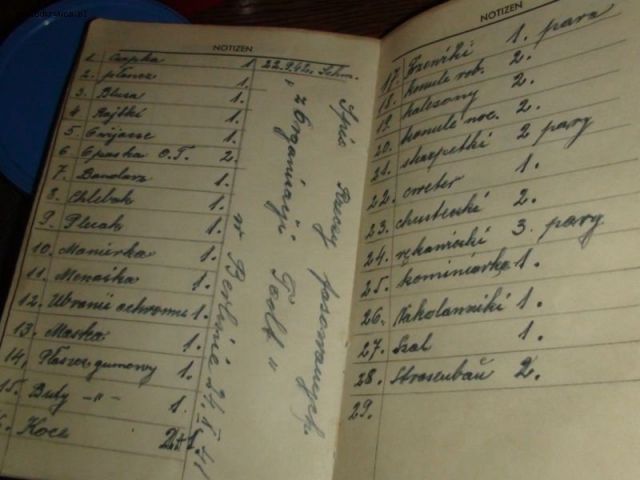 NOTIZEN
1. Czapka 1.
2. płaszcz 1.
3. Bluza 1.
4 Rajtki 1.
5 Owijacze 1.
6 Opaska O.T. 2.
7. Bandarz 1.
8. Chlebak 1.
9. Plecak 1.
10. Manierka 1.
11. Menaska 1.
12. Ubranie ochronne 1.
13. Maska 1.
14. Płaszcz gumowy 1.
15. Buty -"- 1.
Koce 2+1.
22.9.42r.
Spis Rzeczy fasowanych.
z Organizacji Todt "
w Berlinie 24. X 41
NOTIZEN
17. Trzewiki 1. para
18. koszule 2.
19. kalesony 2.
20. koszule noc. 2.
21. skarpetki 2 pary
22. sweter 1.
23. chusteczki 2.
24. rękawiczki 3. pary
25. kominiarka 1.
26. Nakolanniki 1.
27. Szal 1.
28. Strosenbau 2.
29.